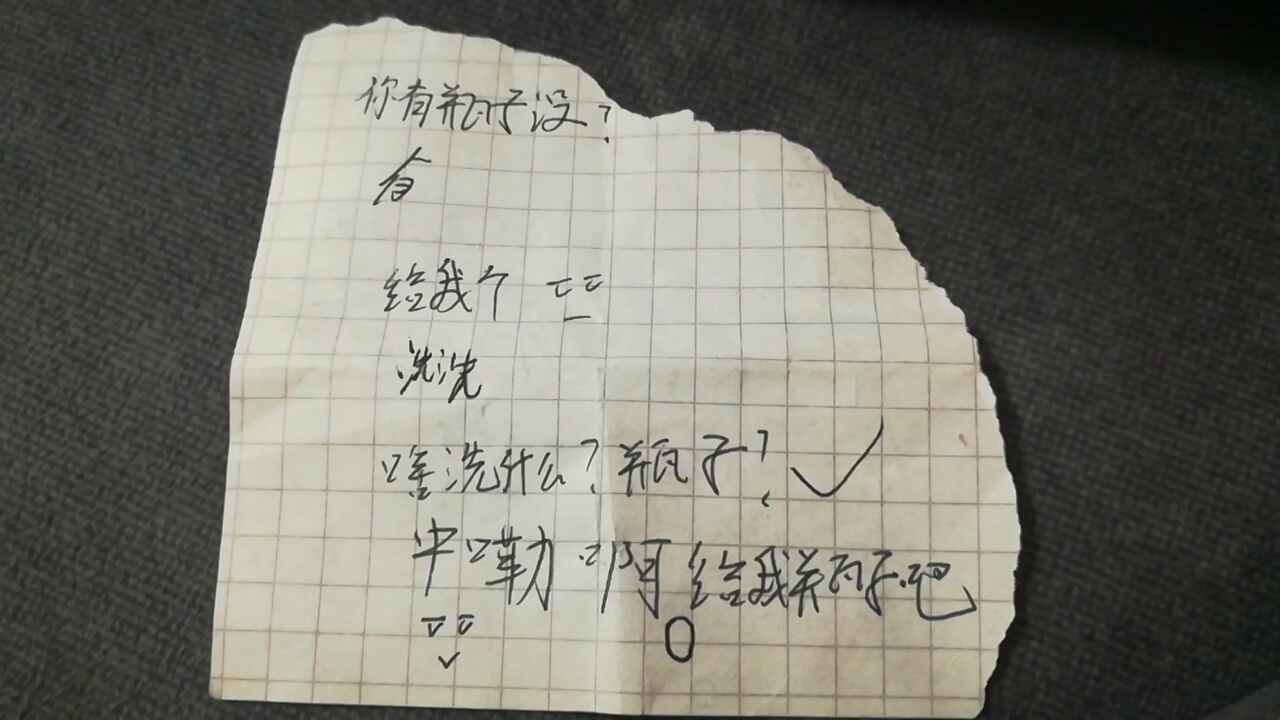 你有瓶子没?
有
给我个
洗洗
啥洗什么?瓶子?✓
中嘞 啊 给我瓶子吧